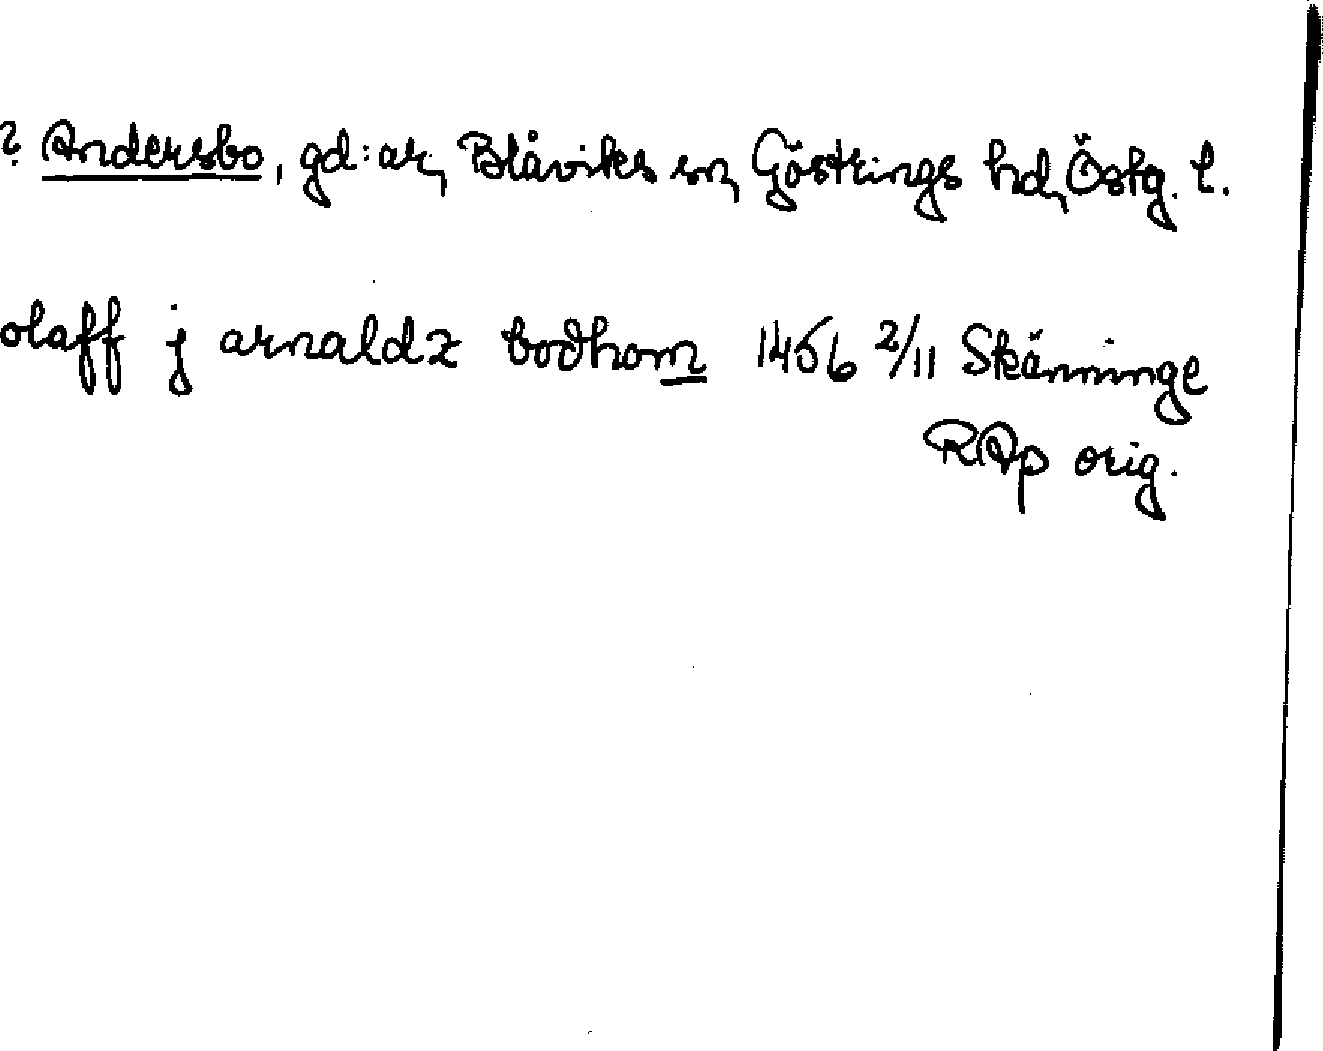 ? Andersbo, gd:ar, Blåviks sn, Göstrings hd, Östg. l.
olaff j arnaldz bodhom 1456 2/11 Skänninge
RAp orig.